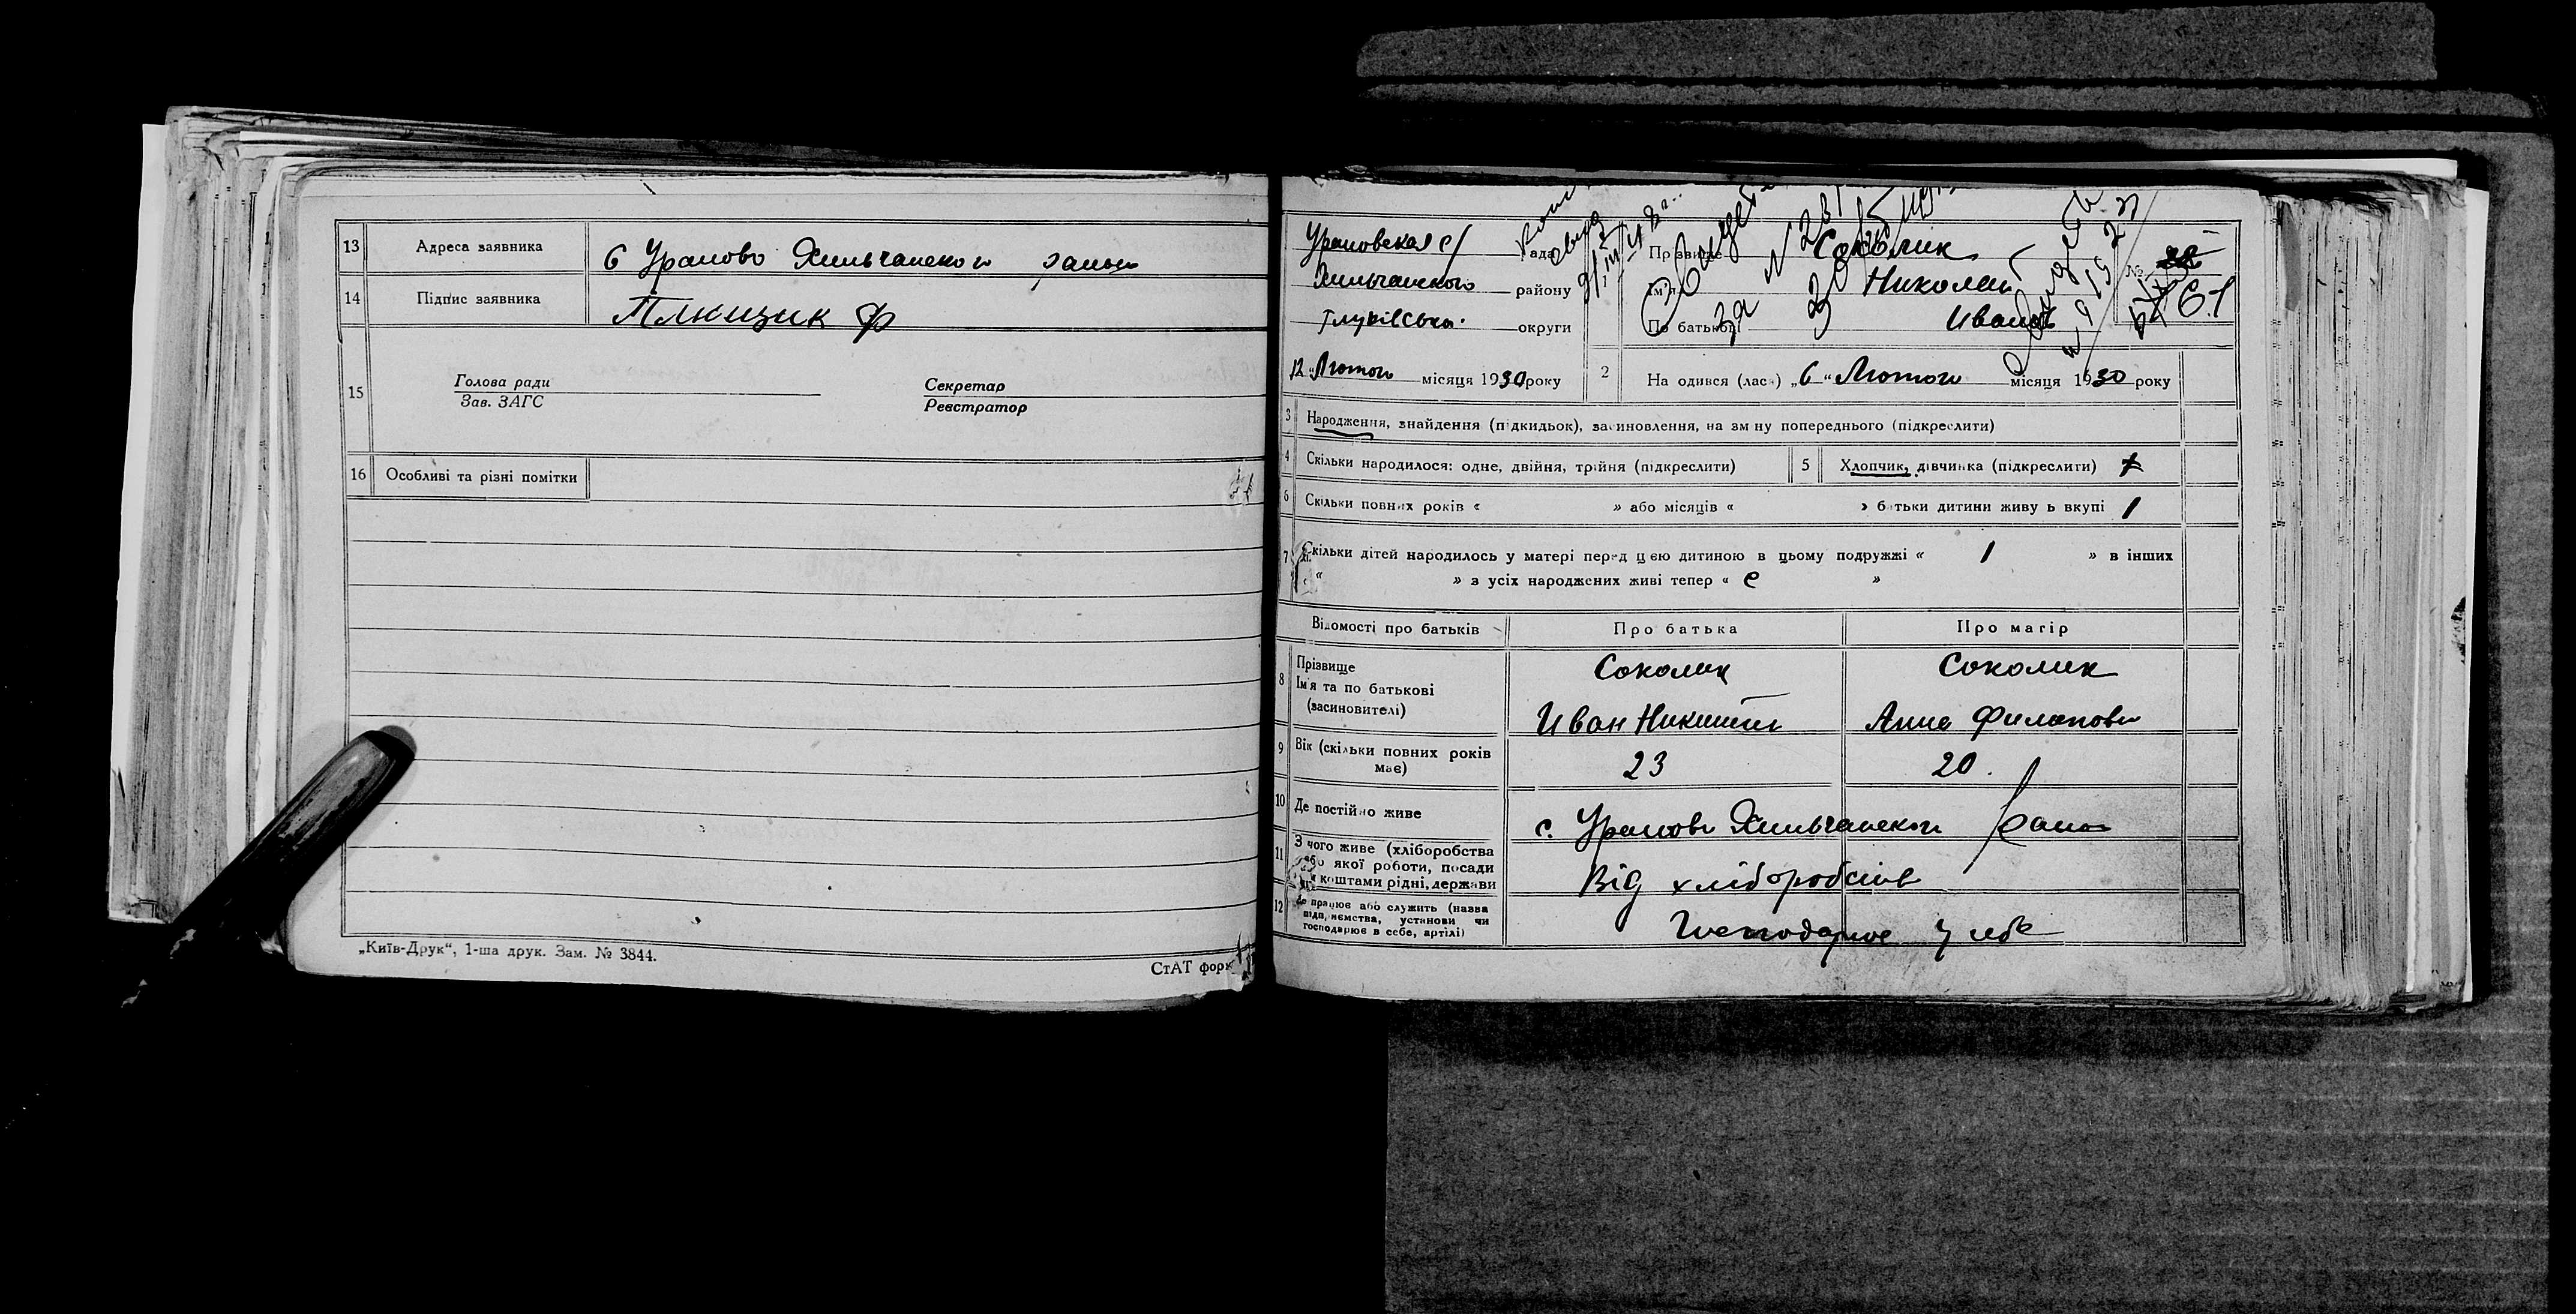 13 Адреса заявника
С Уралово Хильчанског району
14 Підпис заявника
Ф
15 Голова ради
Зав. ЗАГС
Секретар
Реєстратор
16 Особливі та різні помітки
„Київ-Друк“, 1-ша друк. Зам. № 3844.
СтАТ форм
Ураловская с/ Рада
Хильчанського району
Глухівська округи
12 „Лютого місяця 1930 року
Прізвище Соколик
Ім'я Николай
По батькові Иванов
№ 61
2 На одився (лась) „6“ Лютого місяця 1930 року
3 Народження, знайдення (підкидьок), засиновлення, на зміну попереднього (підкреслити)
4 Скільки народилося: одне, двійня, трійня (підкреслити)
5 Хлопчик, дівчинка (підкреслити)
6 Скільки повних років « » або місяців « » батьки дитини живуть вкупі 1
7 Скільки дітей народилось у матері перед цією дитиною в цьому подружжі « 1 » в інших
« » з усіх народжених живі тепер « є »
Відомості про батьків Про батька Про матір
8 Прізвище
Ім'я та по батькові
(засиновителі)
Соколик Соколик
Иван Никитич Анна Филипова
9 Вік (скільки повних років має) 23 20.
10 Де постійно живе с. Уралово Хильчанског району
11 З чого живе (хліборобства
або якої роботи, посади
чи коштами рідні, держави
Від хліборобства
12 Де працює або служить (назва
підприємства, установи чи
господарює в себе, артілі)
Господарює у себе